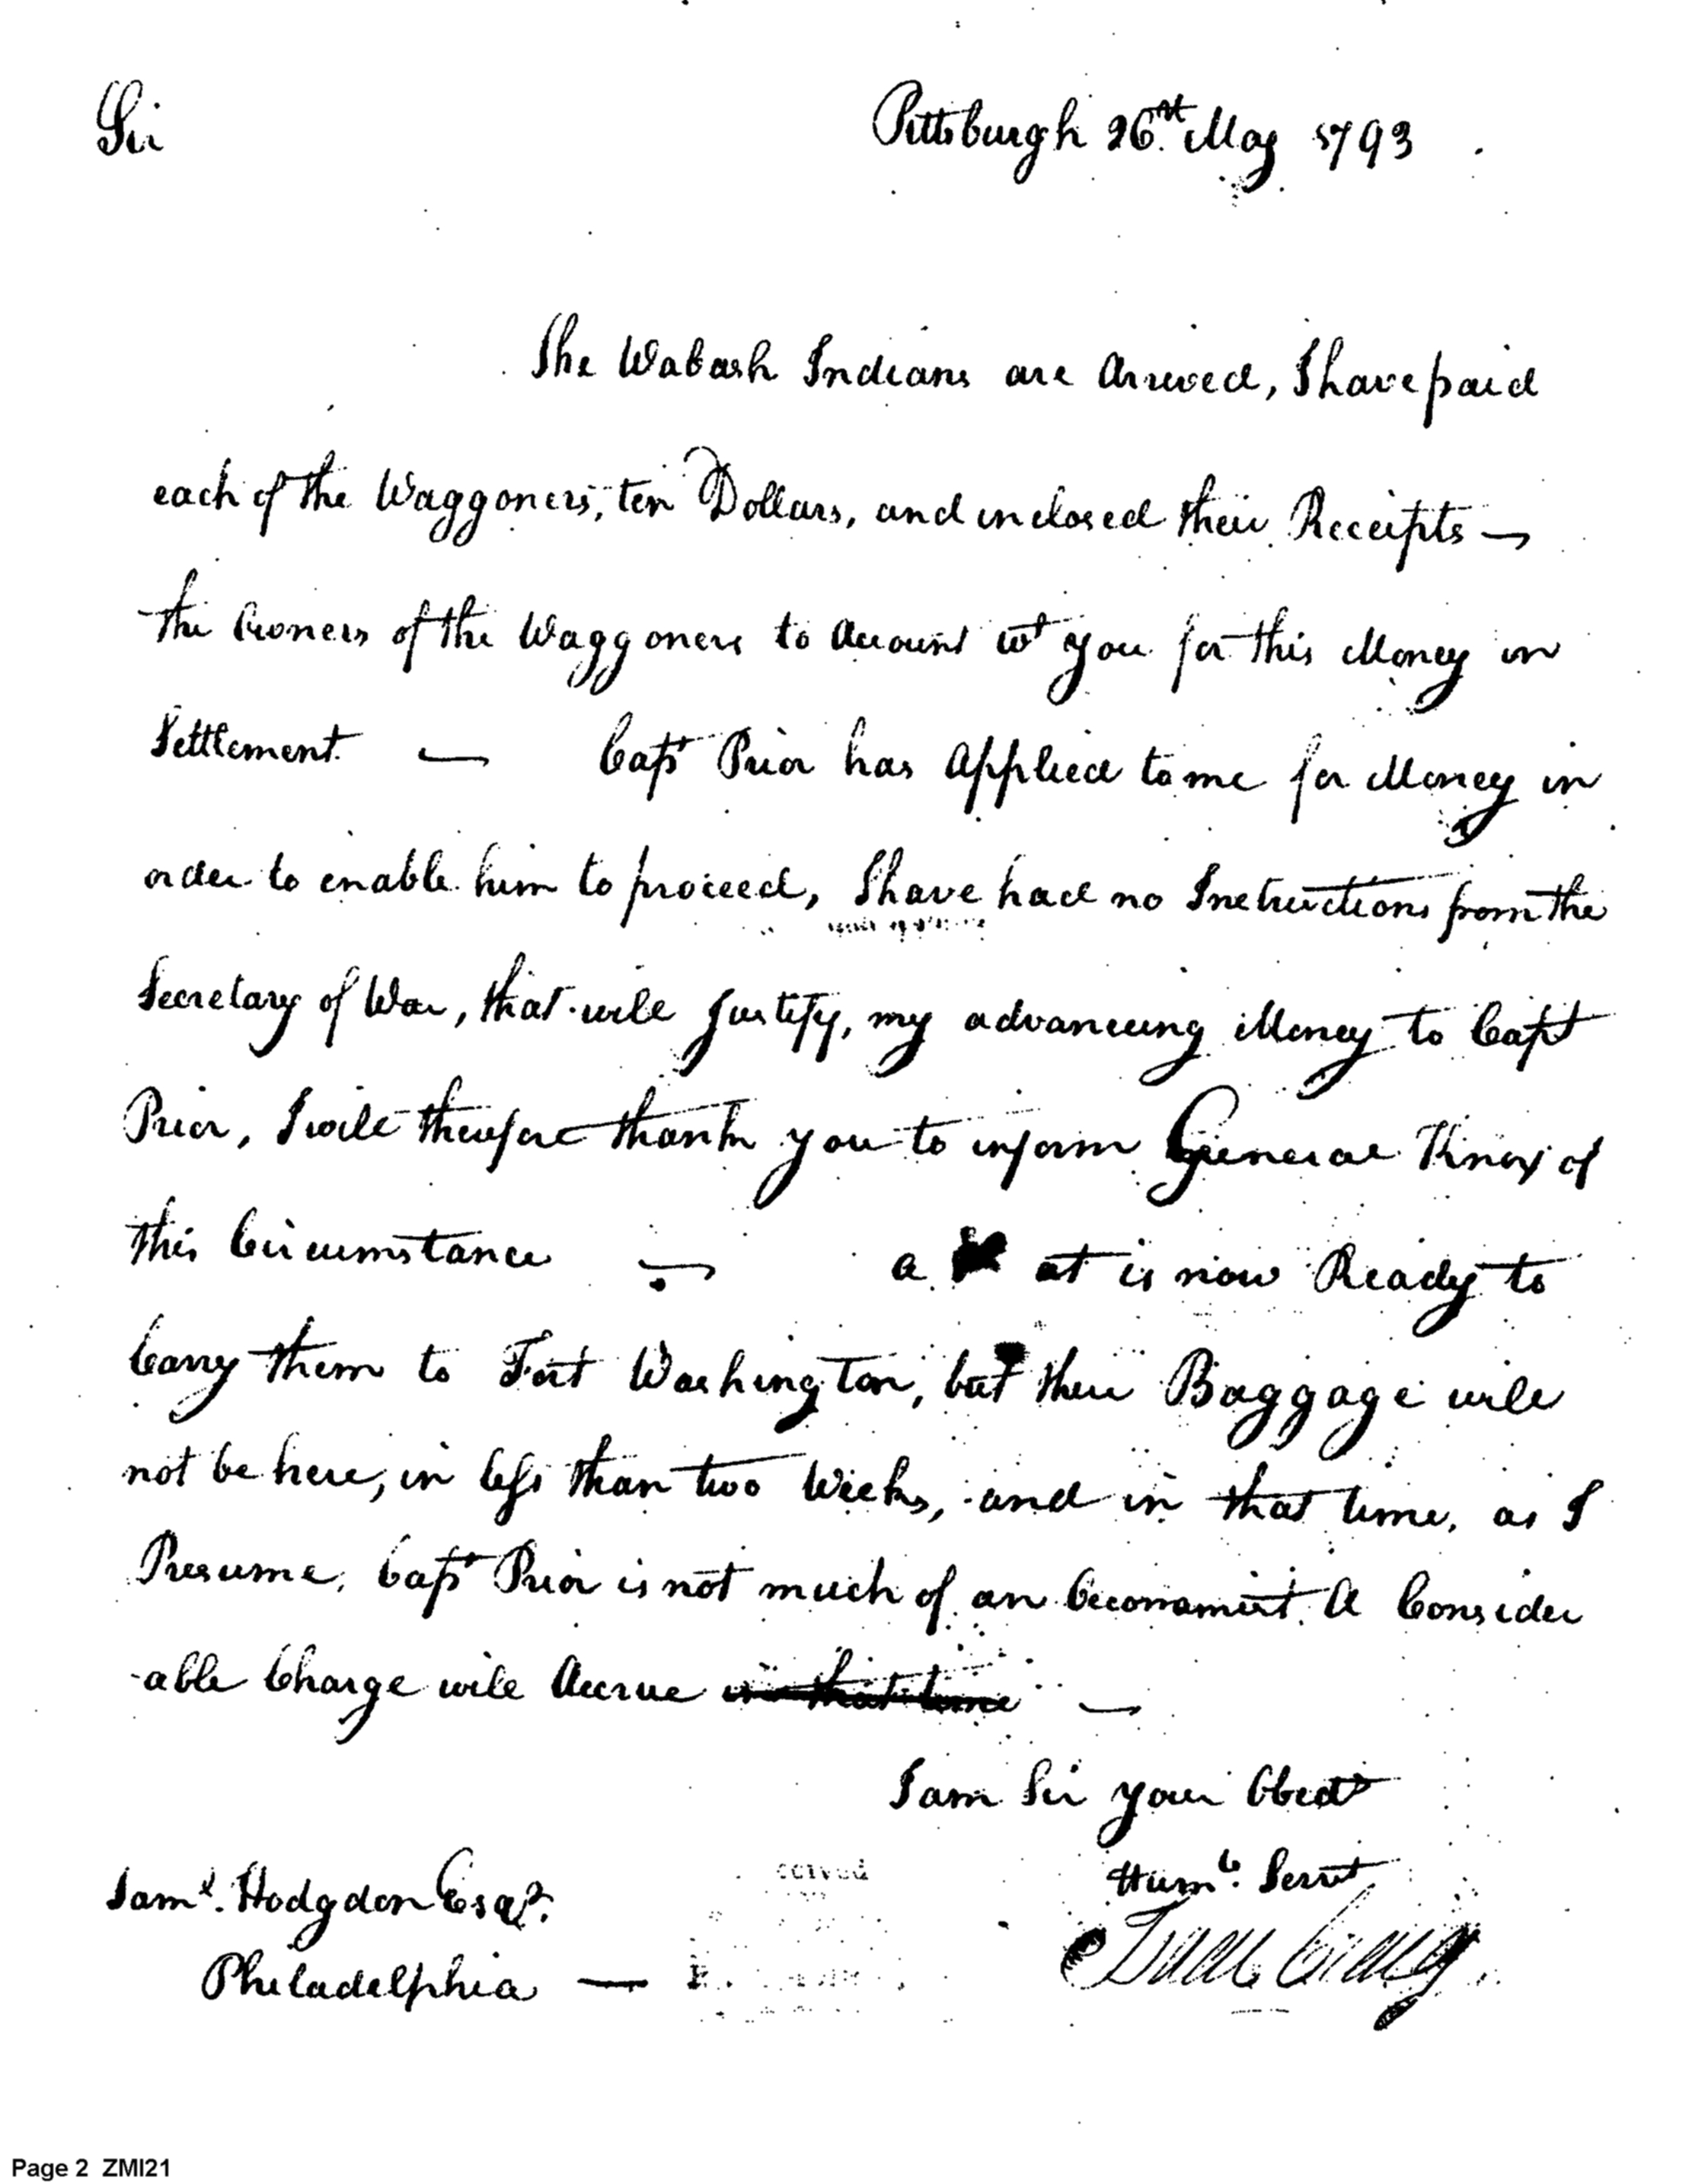 Sir
Pittsburgh 26st May 1793
The Wabash Indians are Arrived, I have paid
each of the Waggoners, ten Dollars, and inclosed their Receipts —
the Owners of the Waggoners to Account wt you for this Money in
Settlement. — Capt Prior has Applied to me for Money in
order to enable him to proceed, I have had no Instructions from the
Secretary of War, that will Justify, my advancing Money to Capt
Prior, I will therefore thank you to inform General Knox of
this Circumstance — a at is now Ready to
Carry them to Fort Washington, but their Baggage will
not be here, in less than two Weeks, and in that time, as I
Presume, Capt Prior is not much of an Oeconomist. A Consider
-able Charge will Accrue in that time —
I am Sir your Obedt
Humb. Servt
Isaac Craig
Saml. Hodgdon Esqr.
Philadelphia —
Page 2 ZMI21